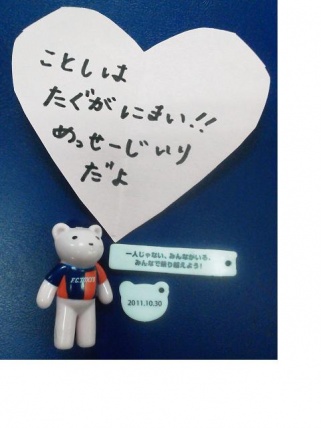 ことしは
たぐがにまい!!
めっせーじいり
だよ
一人じゃない、みんながいる、
みんなで乗り越えよう!
2011.10.30
F.C.TOKYO